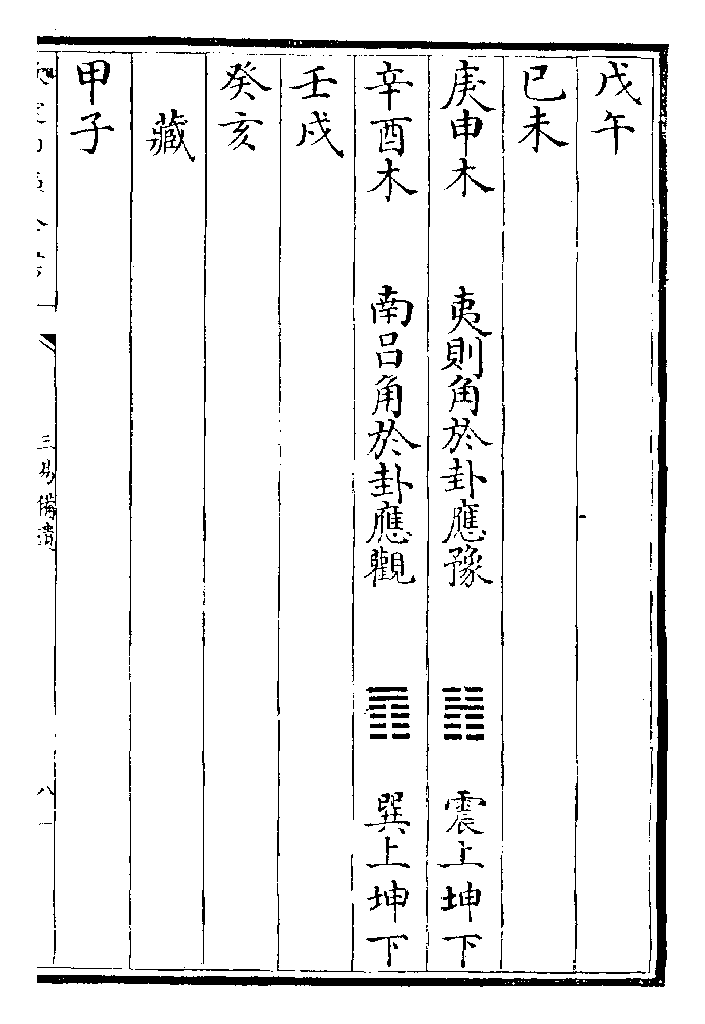 戊午
已未
庚申木　夷則角於卦應豫　䷏　震上坤下
辛酉木　南吕角於卦應觀　䷓　巽上坤下
壬戌
癸亥
藏
甲子
三易備遺
八